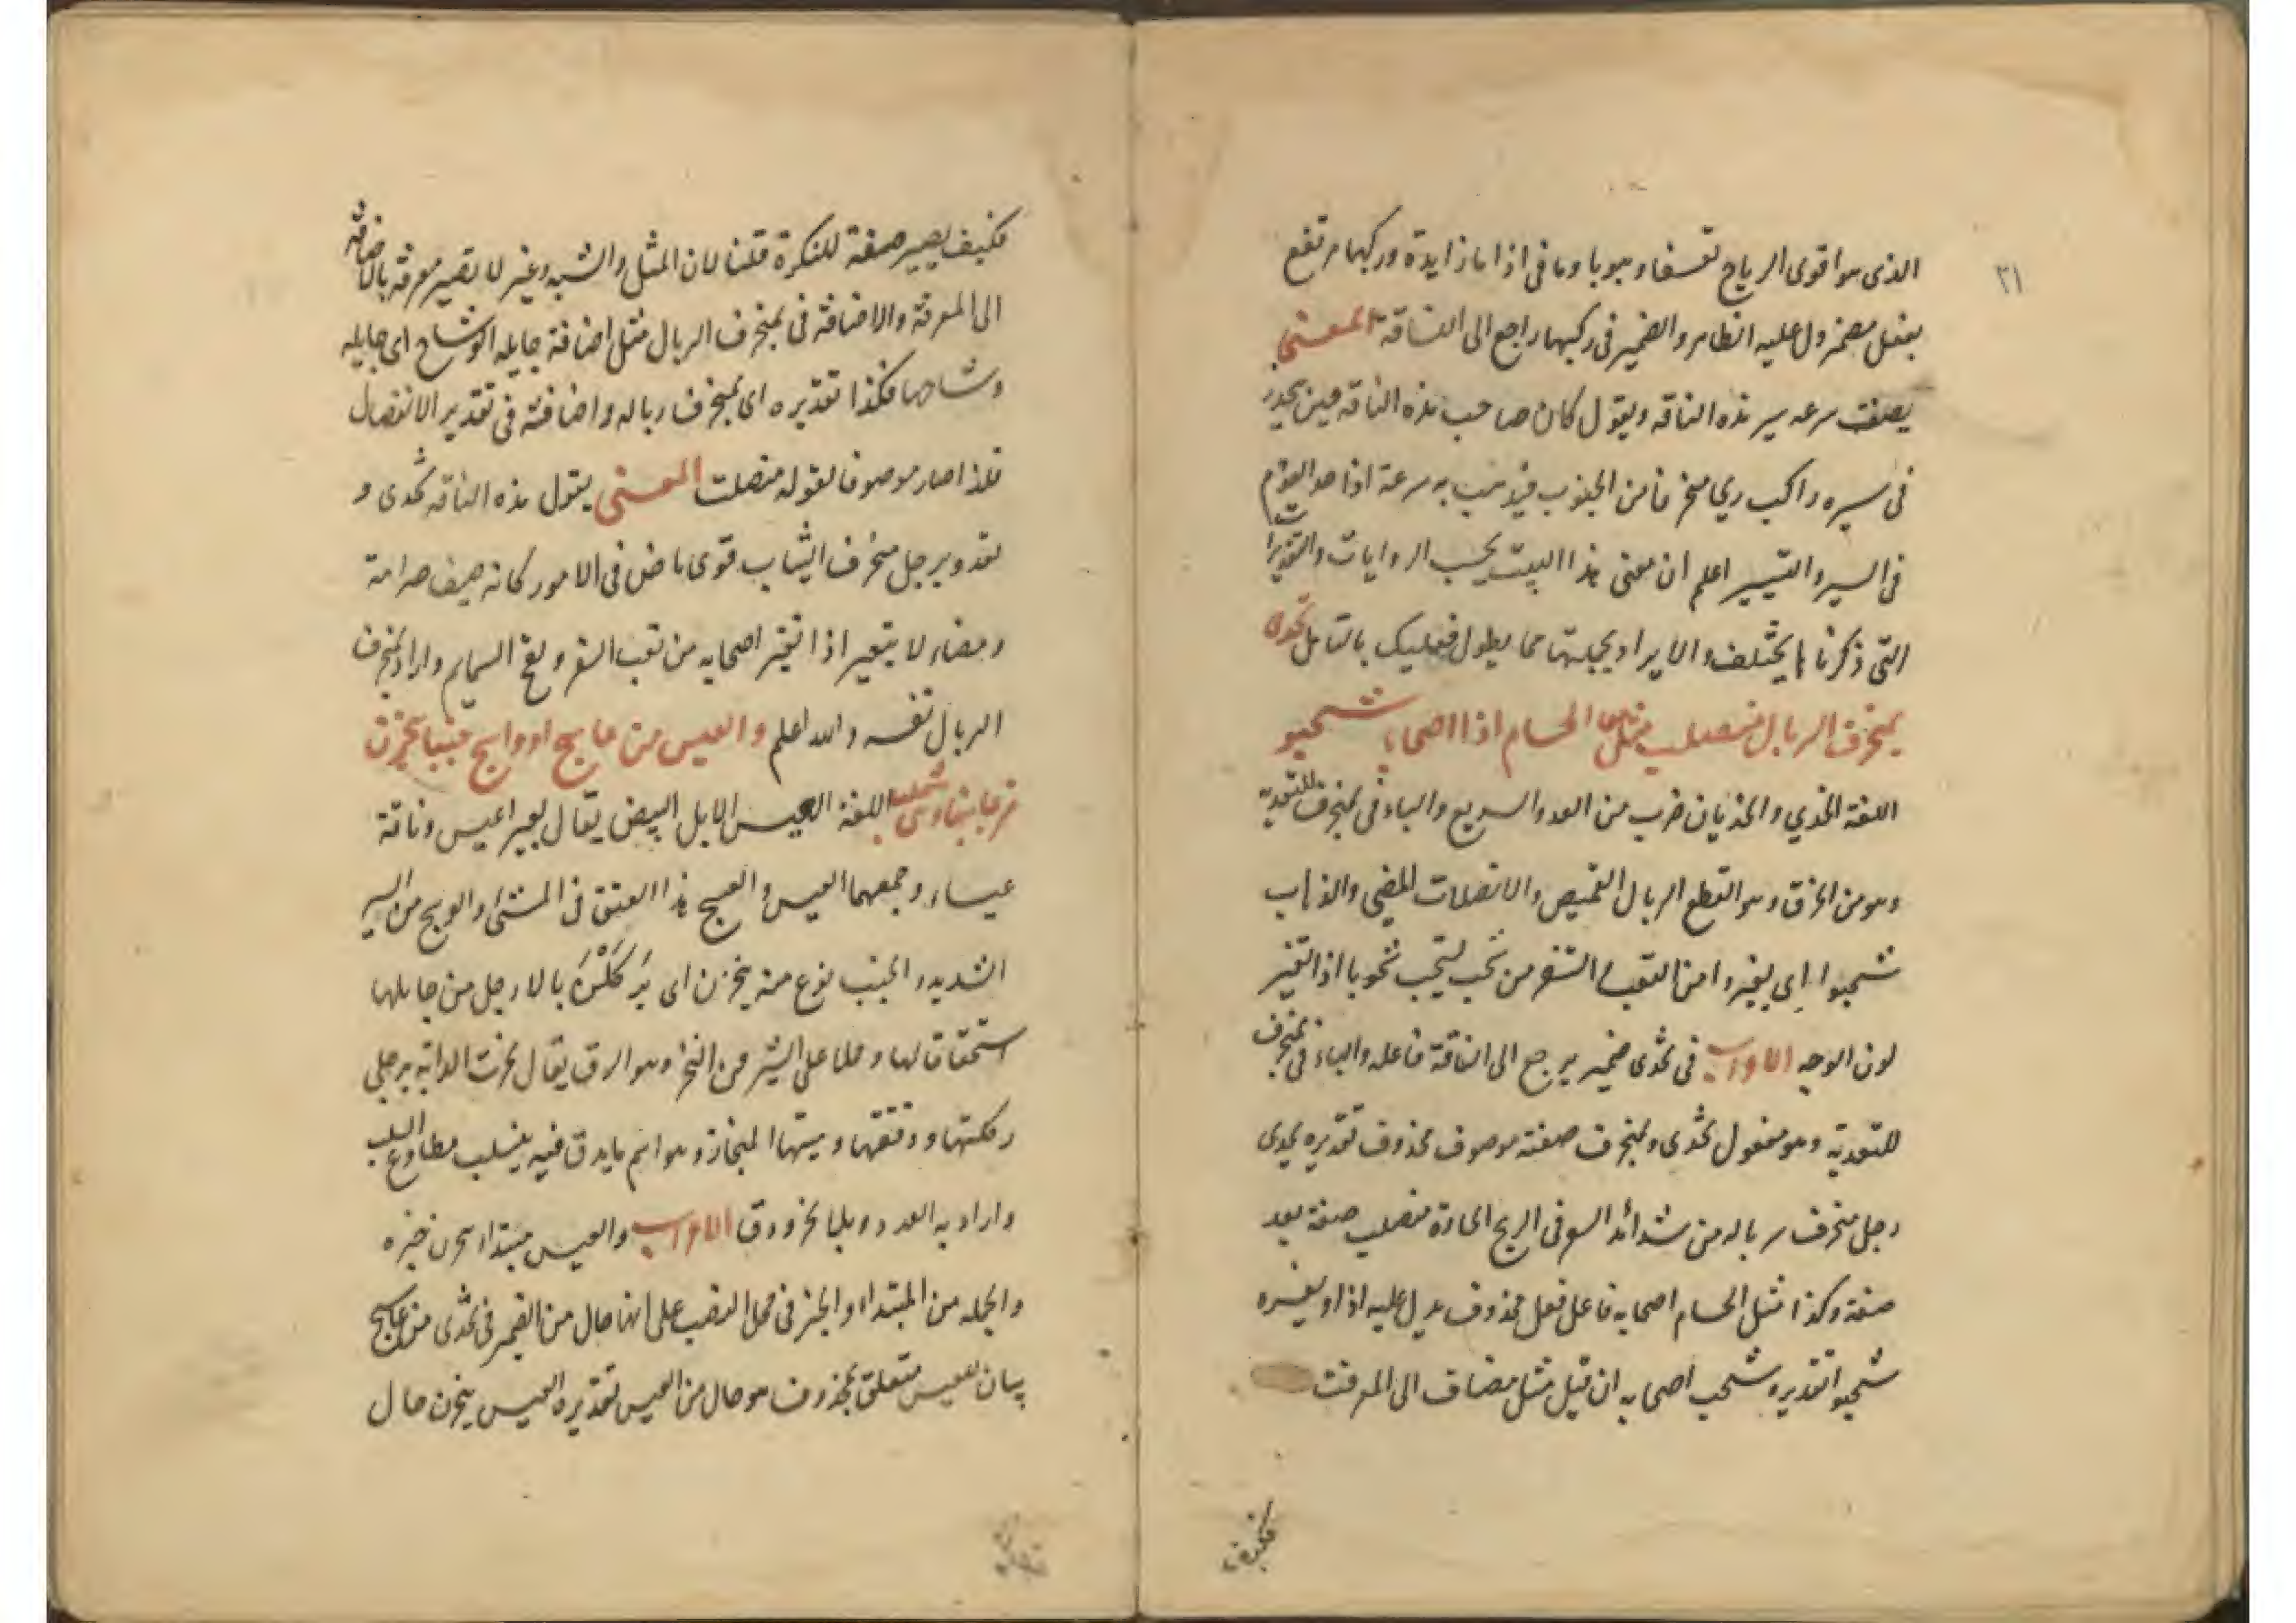 ٢١
الذى هو اقوى الرياح تعسفا وهبوبا وما فى اذا ما زايدة وركبها مرتفع
بفعل مضمر ول عليه الظاهر والضمير فى ركبها راجع الى الناقة المعنى
يصف سرعه سير هذه الناقه ويقول كان صاحب هذه الناقه حين يحدر
فى سيره راكب ريح منخرفا من الجنوب فيذهب به سرعة اذا القوم
فى السير والتسيير اعلم ان معنى هذا البيت بحسب الروايات والتقديرات
التى ذكرنا ها يختلف والايراد بجملتها مما يطول فعليك بالتامل تخدى
بمنخرق السربال منصلت مثل الحسام اذا اصحابه شحبوا
اللغة الخدي والخذيان ضرب من العدو السريع والباء فى بمنخرق للتعدية
وهو من الخرق وهو القطع السربال القميص والانصلات المضي والذهاب
شحبوا اى يغيروا من التعب السفر من شحب يشحب شحوبا اذا تغير
لون الوجه الاعراب فى تخدى ضمير يرجع الى الناقة فاعله والباء فى بمنخرق
للتعدية وهو مفعول تخدى وبمنخرق صفة موصوف محذوف تقديره تخدى
رجل منخرف سرباله من شدائد السفر فى الريح الحارة منصلت صفة بعد
صفة وكذا مثل الحسام اصحابه فاعل فعل محذوف يدل عليه اذا ويفسره
شحبوا تقديره شحب اصحابه ان قيل مثل مضاف الى المعرفت
فكيف
فكيف يصير صفة للنكرة قلنا لان المثل والشبه وغير لا تصير معرفة بالاضافة
الى المعرفة والاضافة فى بمنخرف السربال مثل اضافة جايلة الوشاح اى جايله
وشاحها فكذا تقديره اى بمنخرف سرباله واضافته فى تقدير الانفصال
فلذا صار موصوفا لقوله منصلت المعنى يقول هذه الناقه تخدى و
تعدو برجل منخرف الثياب قوى ماض فى الامور كانه سيف صرامة
ومضاء لا يتغير اذا تغير اصحابه من تعب السفر ولفح السمايم واراد بمنخرف
السربال نفسه والله اعلم والعيس من عاسج او واسج خببا ينحزن
من جانبيها وهى تنسلب اللغة العيس الابل البيض يقال بعير اعيس وناقة
عيساء وجمعهما العيس والعسج هذا العنق فى المشى والوسج من السير
الشديد والخبب نوع منه ينحزن اى يَركُلْنَ بالارجل من جانبها
استحقاقا لها وحملا على السير من النحز وهو الدق يقال نحزت الدابة برجلى
ركلتها ودققتها وسيتها المنحاز وهو اسم ما يدق فيه ينسلب مطاوع السلب
واراد به العدو الاعراب والعيس مبتداء ينحزن خبره
والجمله من المبتداء والخبر فى محل النصب على انها حال من الضمير فى تخدى من عاسج
بيان للعيس متعلق بمحذوف هو حال من العيس تقديره العيس ينحزن حال